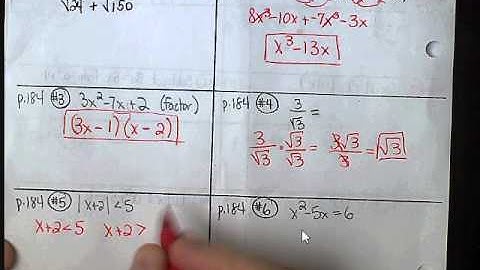 √24 + √150
8x³-10x+-7x³-3x
x³-13x
p.184 #3 3x²-7x+2 (factor)
(3x-1)(x-2)
p.184 #4 3/√3 =
3/√3 · √3/√3 = 3√3/3 = √3
p.184 #5 |x+2|<5
x+2<5 x+2>
p.184 #6 x²-5x=6